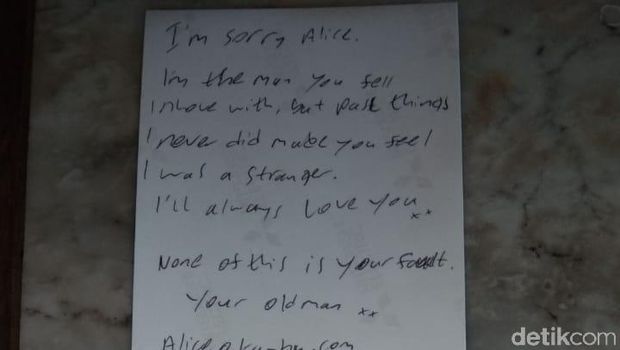 I'm sorry Alice.
I'm the man you fell
in love with, but past things
I never did made you feel
I was a stranger.
I'll always love you xx
None of this is your fault.
Your old man xx
Alice
detikcom